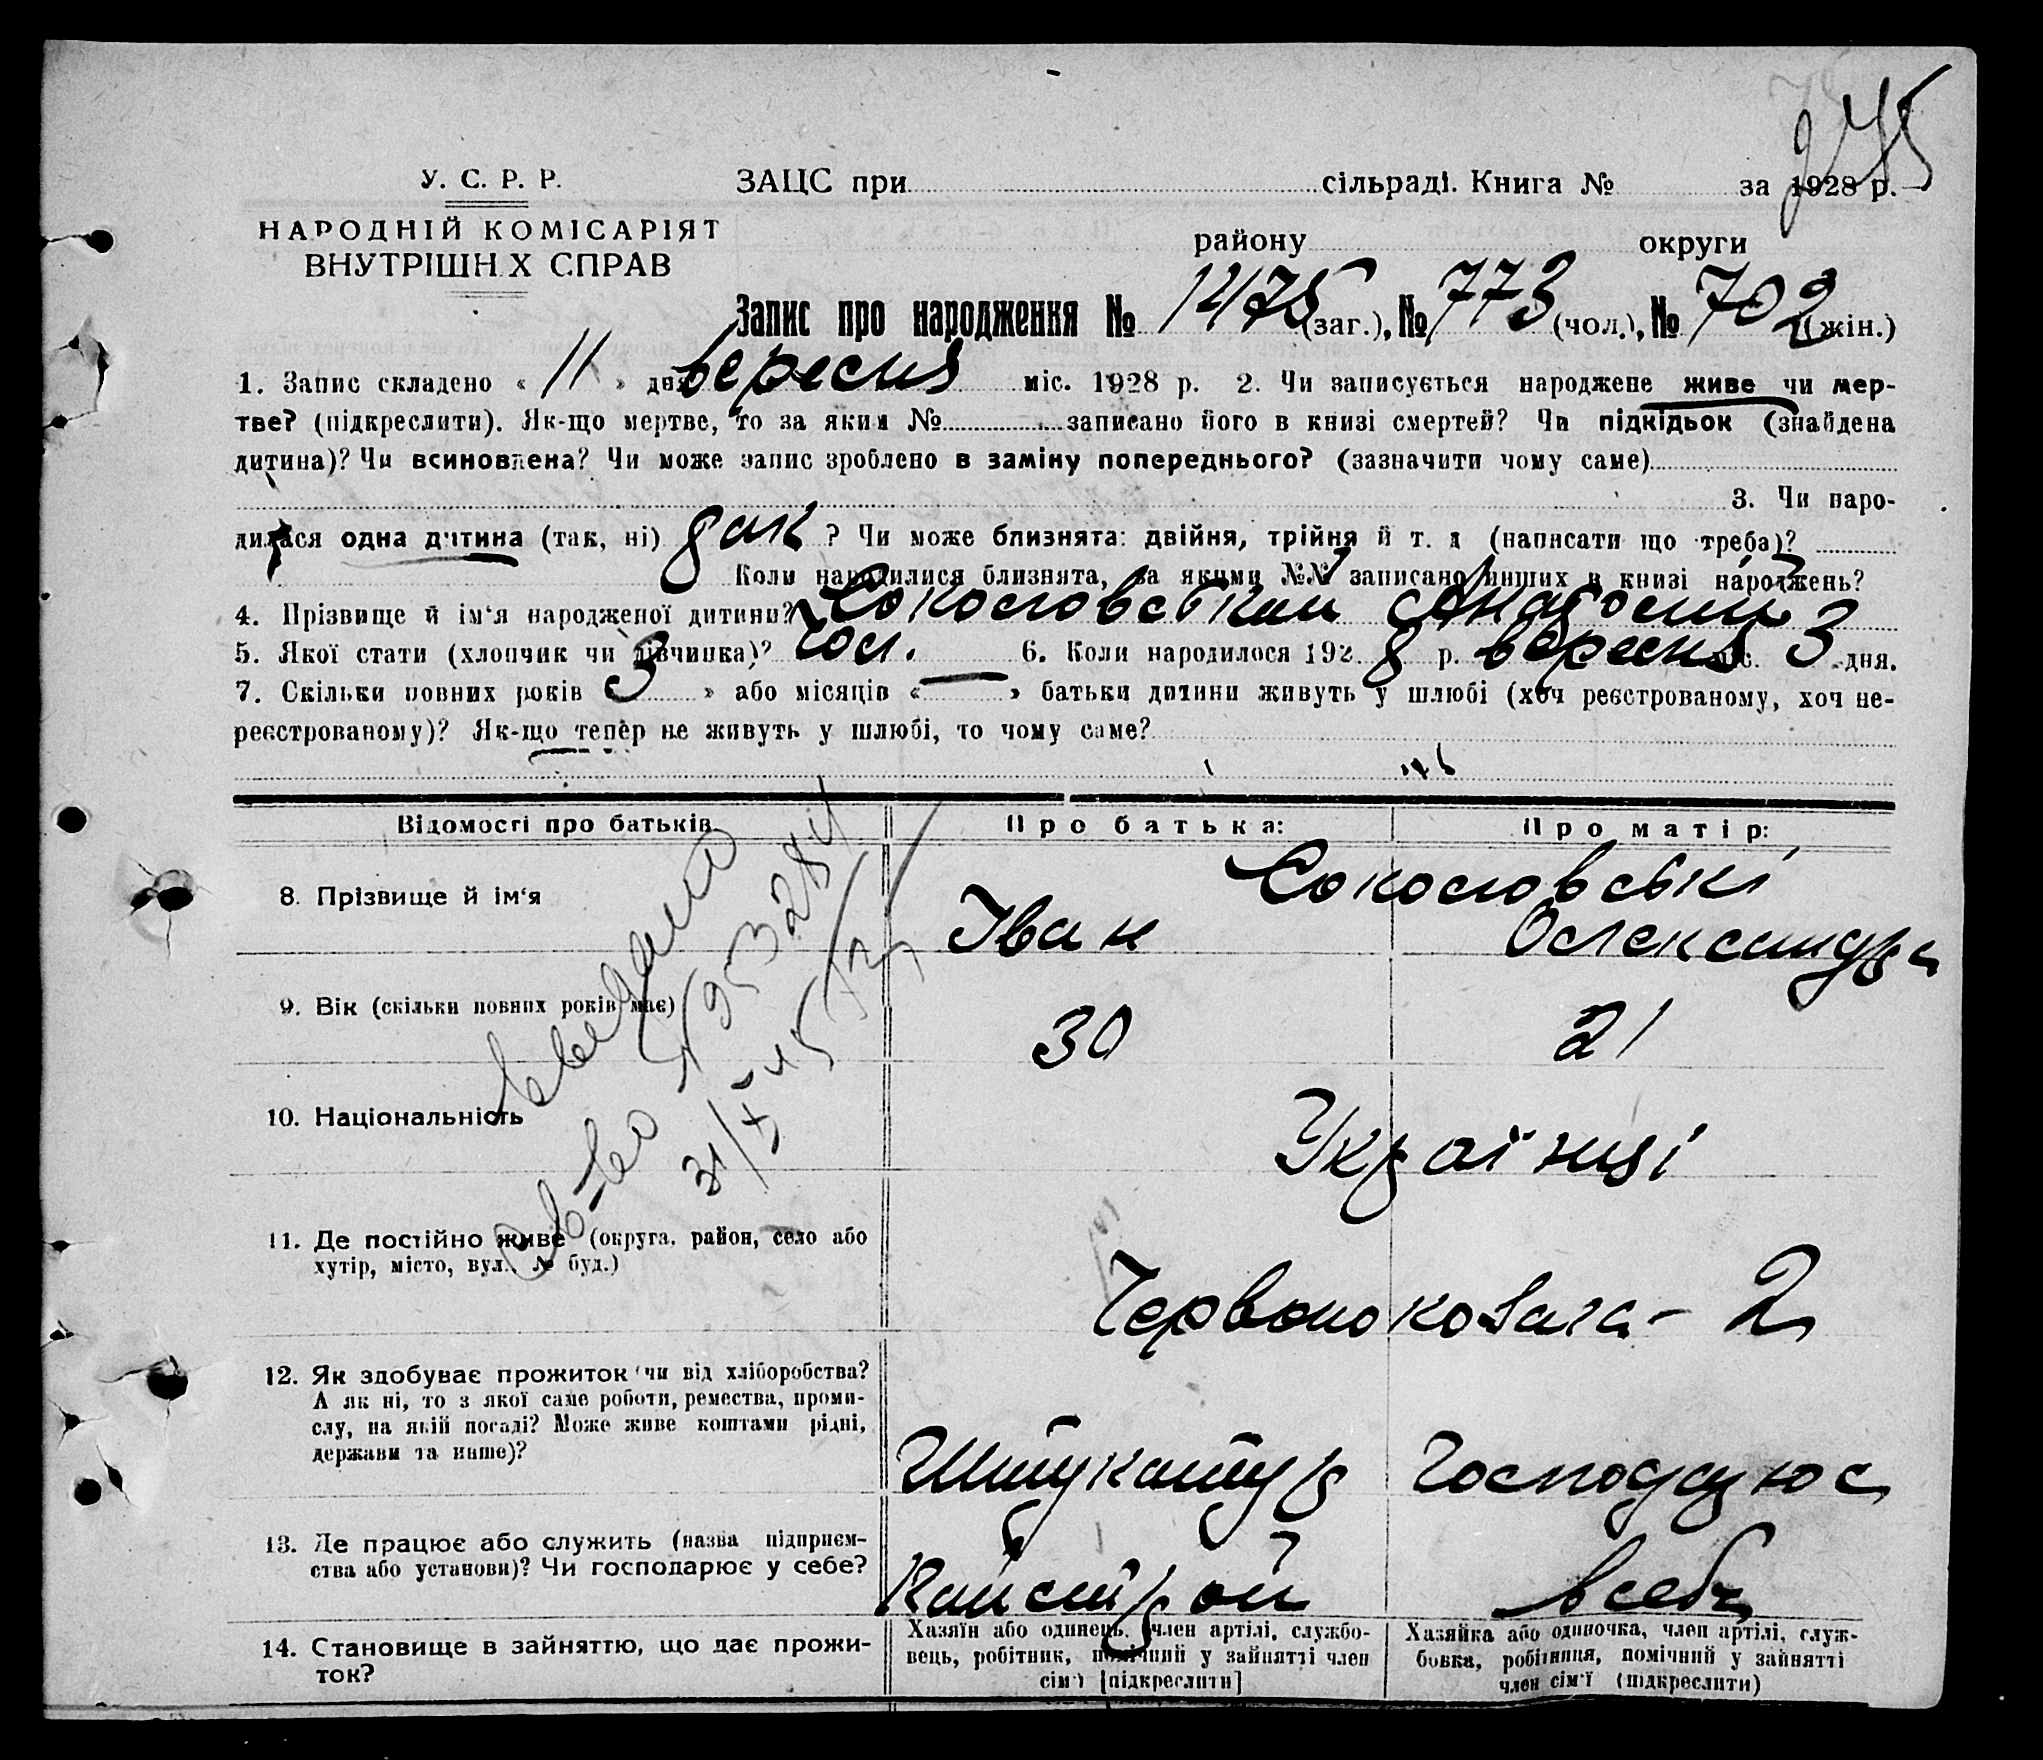 275
У. С. Р. Р. ЗАЦС при сільраді. Книга № за 1928 р.
НАРОДНІЙ КОМІСАРІЯТ
ВНУТРІШН Х СПРАВ
району округи
Запис про народження № 1475 (заг.), № 773 (чол.), № 702 (жін.)
1. Запис складено « 11 » дня вересня міс. 1928 р. 2. Чи записується народжене живе чи мер-
тве? (підкреслити). Як-що мертве, то за яким № записано його в книзі смертей? Чи підкідьок (знайдена
дитина)? Чи всиновлена? Чи може запис зроблено в заміну попереднього? (зазначити чому саме)
3. Чи наро-
дилася одна дитина (так, ні) так ? Чи може близнята: двійня, трійня й т. д (написати що треба)?
Коли народилися близнята, за якими №№ записано инших в книзі народжень?
4. Прізвище й ім‘я народженої дитини? Соколовський Анатолій
5. Якої стати (хлопчик чи дівчинка)? чол. 6. Коли народилося 192 8 р. вересня міс. 3 дня.
7. Скільки повних років « 3 » або місяців « — » батьки дитини живуть у шлюбі (хоч реєстрованому, хоч не-
реєстрованому)? Як-що тепер не живуть у шлюбі, то чому саме?
Відомості про батьків Про батька: Про матір:
8. Прізвище й ім‘я Соколовські
Іван Олександра
9. Вік (скільки повних років має) 30 21
10. Національність Українці
11. Де постійно живе (округа, район, село або
хутір, місто, вул., № буд.)
Червонокозача - 2
12. Як здобуває прожиток (чи від хліборобства?
А як ні, то з якої саме роботи, ремества, проми-
слу, на якій посаді? Може живе коштами рідні,
держави та инше)?
Штукатур
13. Де працює або служить (назва підприєм-
ства або установи)? Чи господарює у себе?
в себе
14. Становище в зайняттю, що дає прожи-
ток?
Хазяїн або одинець, член артілі, службо-
вець, робітник, помічний у зайнятті член
сім‘ї [підкреслити]
Хазяйка або одиночка, член артілі, служ-
бовка, робітниця, помічний у зайнятті
член сім‘ї (підкреслити)